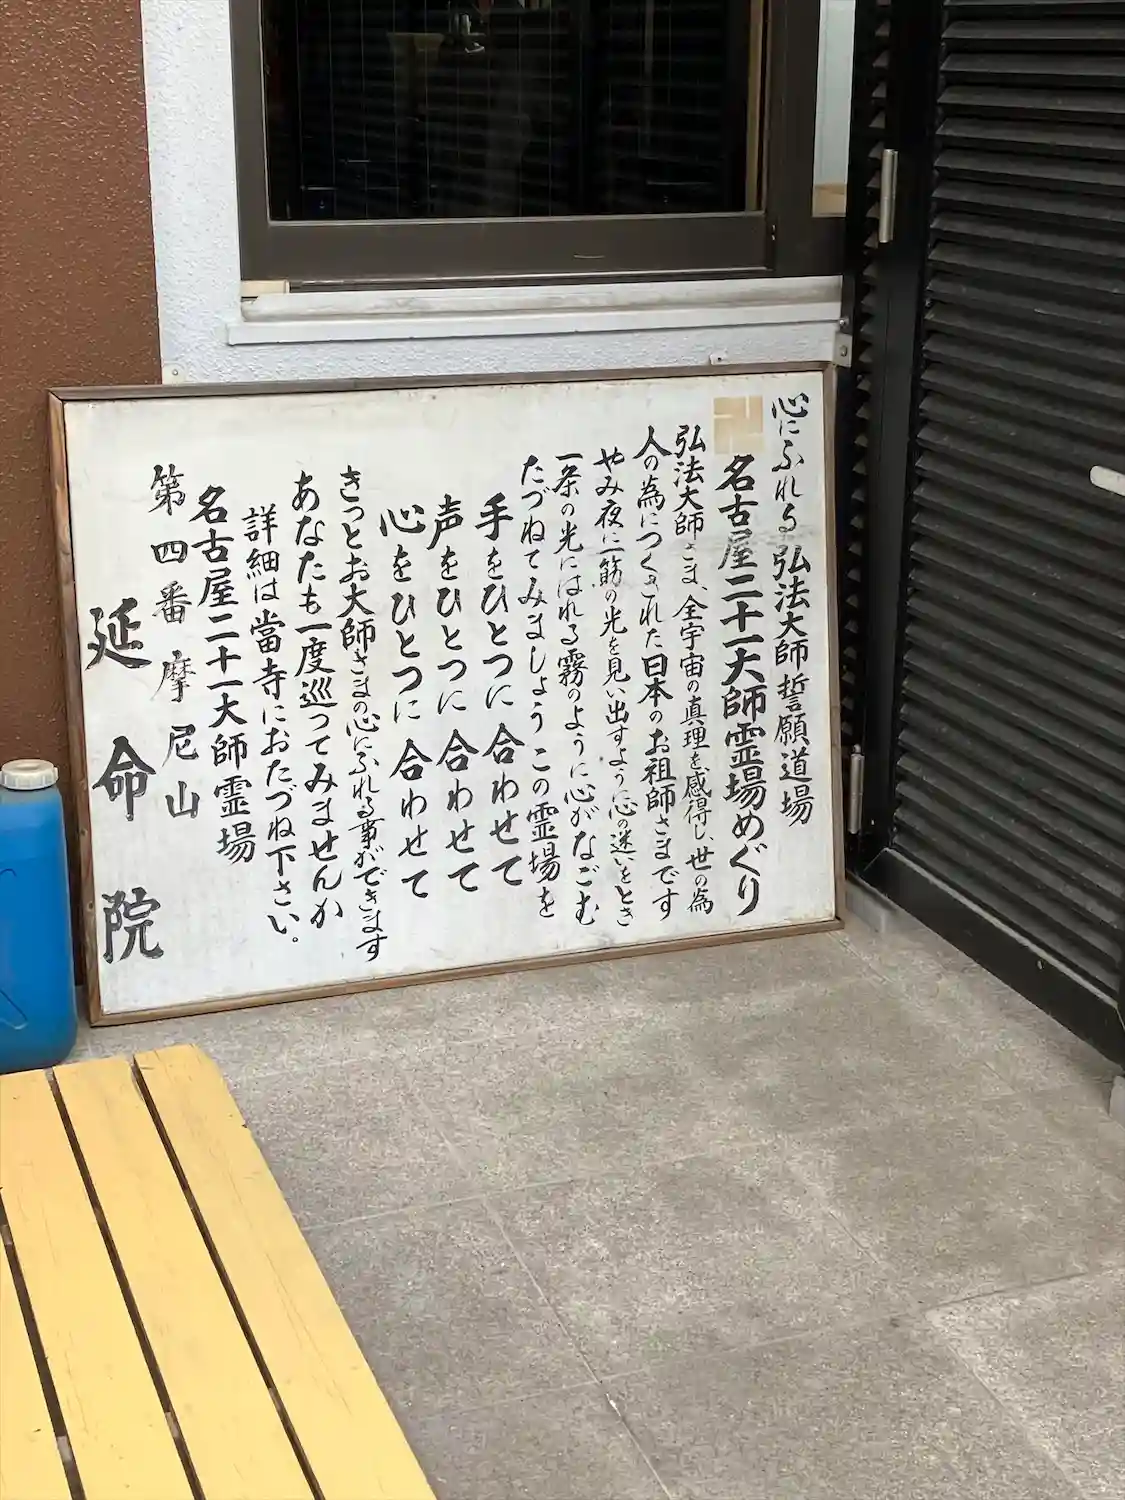 心にふれる 弘法大師誓願道場
卍 名古屋二十一大師霊場めぐり
弘法大師さま、全宇宙の真理を感得し、世の為
人の為につくされた日本のお祖師さまです
やみ夜に一筋の光を見い出すように心の迷いをとき
一条の光にはれる霧のように心がなごむ
たづねてみましょうこの霊場を
手をひとつに合わせて
声をひとつに合わせて
心をひとつに合わせて
きっとお大師さまの心にふれる事ができます
あなたも一度巡ってみませんか
詳細は當寺におたづね下さい。
名古屋二十一大師霊場
第四番 摩尼山
延命院